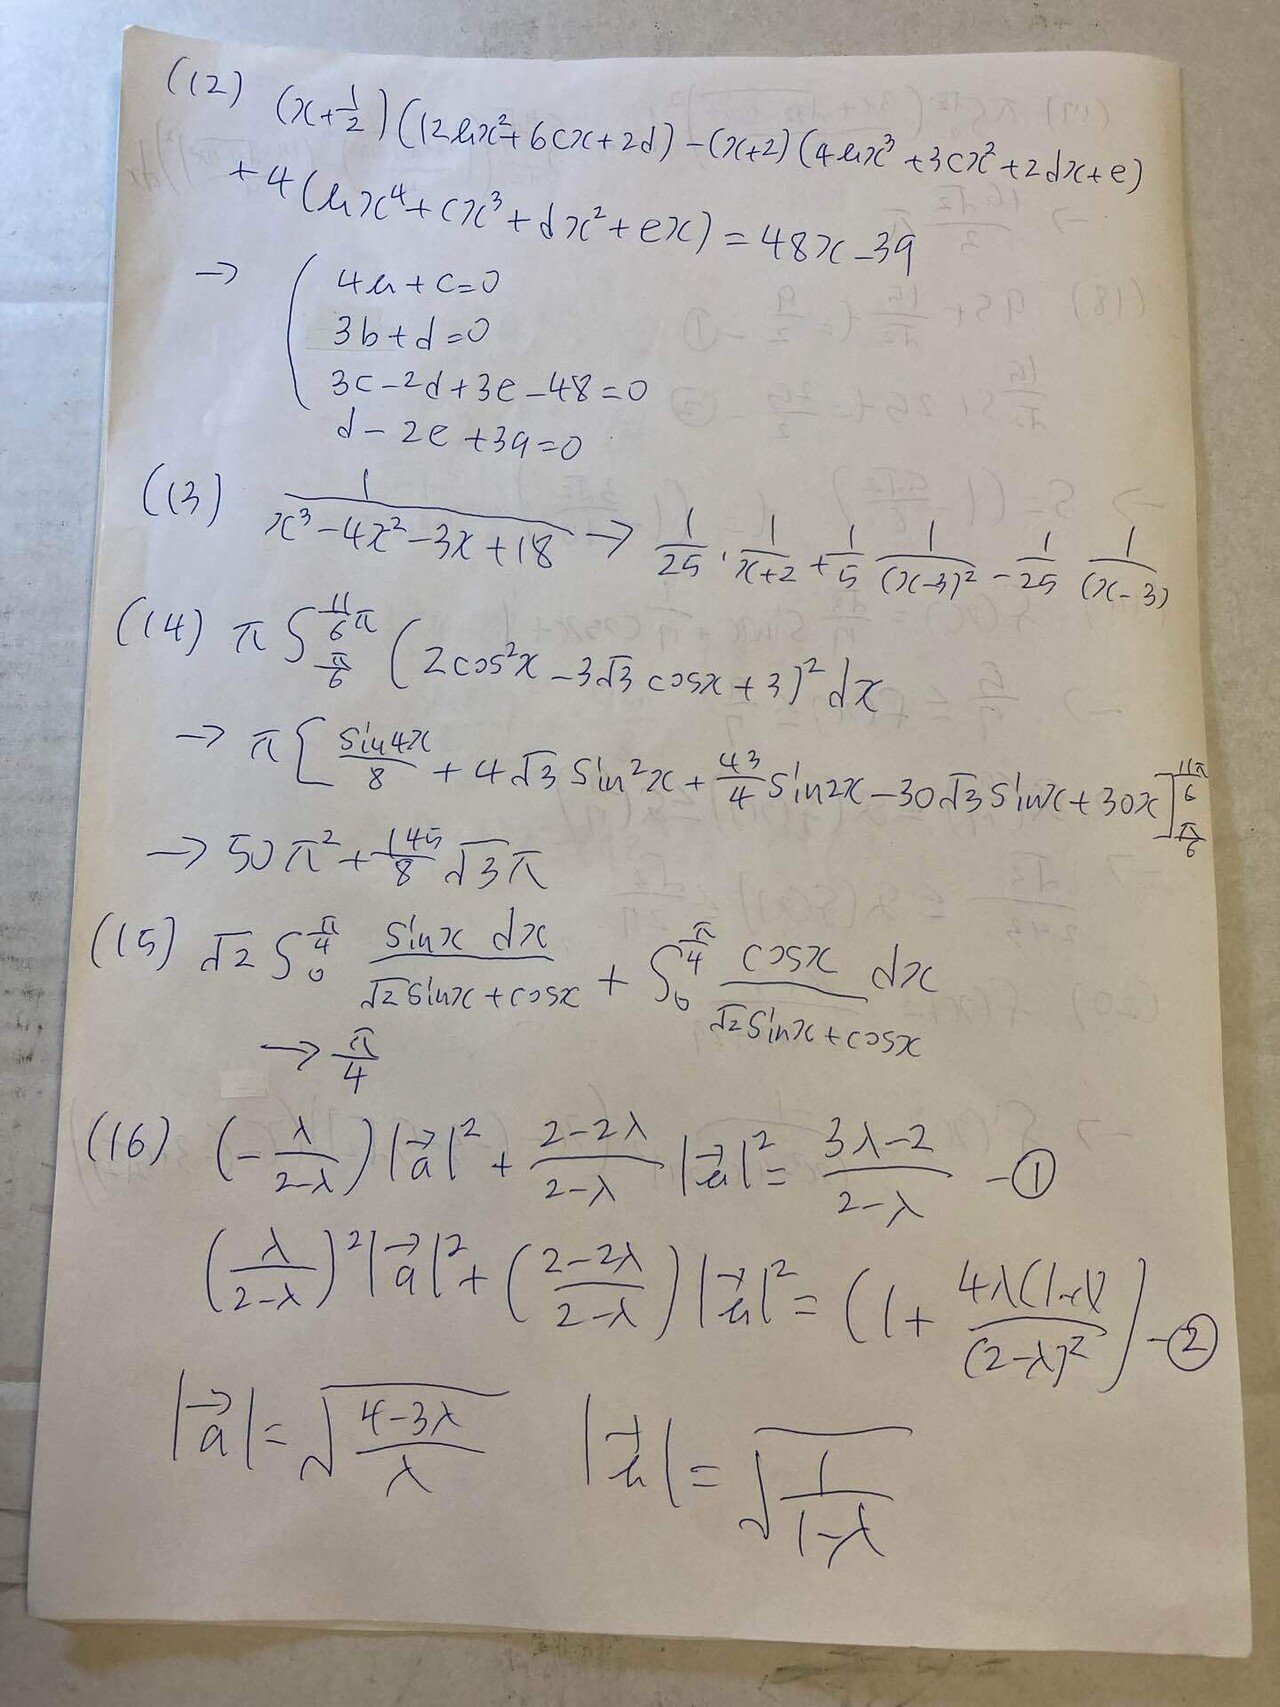 (12) (x+1/2)(12bx²+6cx+2d)-(x+2)(4bx³+3cx²+2dx+e)
+4(bx⁴+cx³+dx²+ex)=48x-39
→ { 4b+c=0
3b+d=0
3c-2d+3e-48=0
d-2e+39=0
(13) 1/(x³-4x²-3x+18) → 1/25・1/(x+2)+1/5 1/(x-3)²-1/25 1/(x-3)
(14) π∫_{π/6}^{11/6π} (2cos²x-3√3cosx+3)²dx
→ π[sin4x/8+4√3sin²x+43/4sin2x-30√3sinx+30x]_{π/6}^{11π/6}
→ 50π²+145/8√3π
(15) √2∫_0^{π/4} sinx dx/(√2sinx+cosx)+∫_0^{π/4} cosx/(√2sinx+cosx) dx
→ π/4
(16) (-λ/(2-λ))|a⃗|²+(2-2λ)/(2-λ)|b⃗|²=(3λ-2)/(2-λ) -①
(λ/(2-λ))²|a⃗|²+((2-2λ)/(2-λ))|b⃗|²=(1+4λ(1-λ)/(2-λ)²) -②
|a⃗|=√((4-3λ)/λ) |b⃗|=√(1/(1-λ))